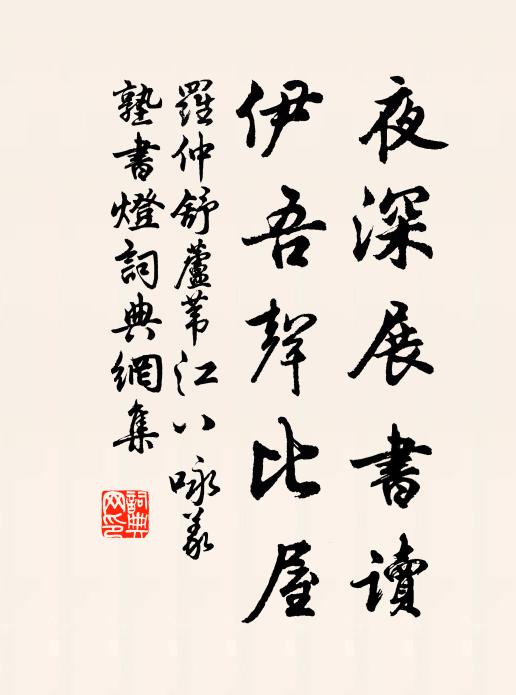 夜深展書讀
伊吾聲比屋
羅仲舒蘆葦江八咏義
塾書燈詞典網集
詞典网印